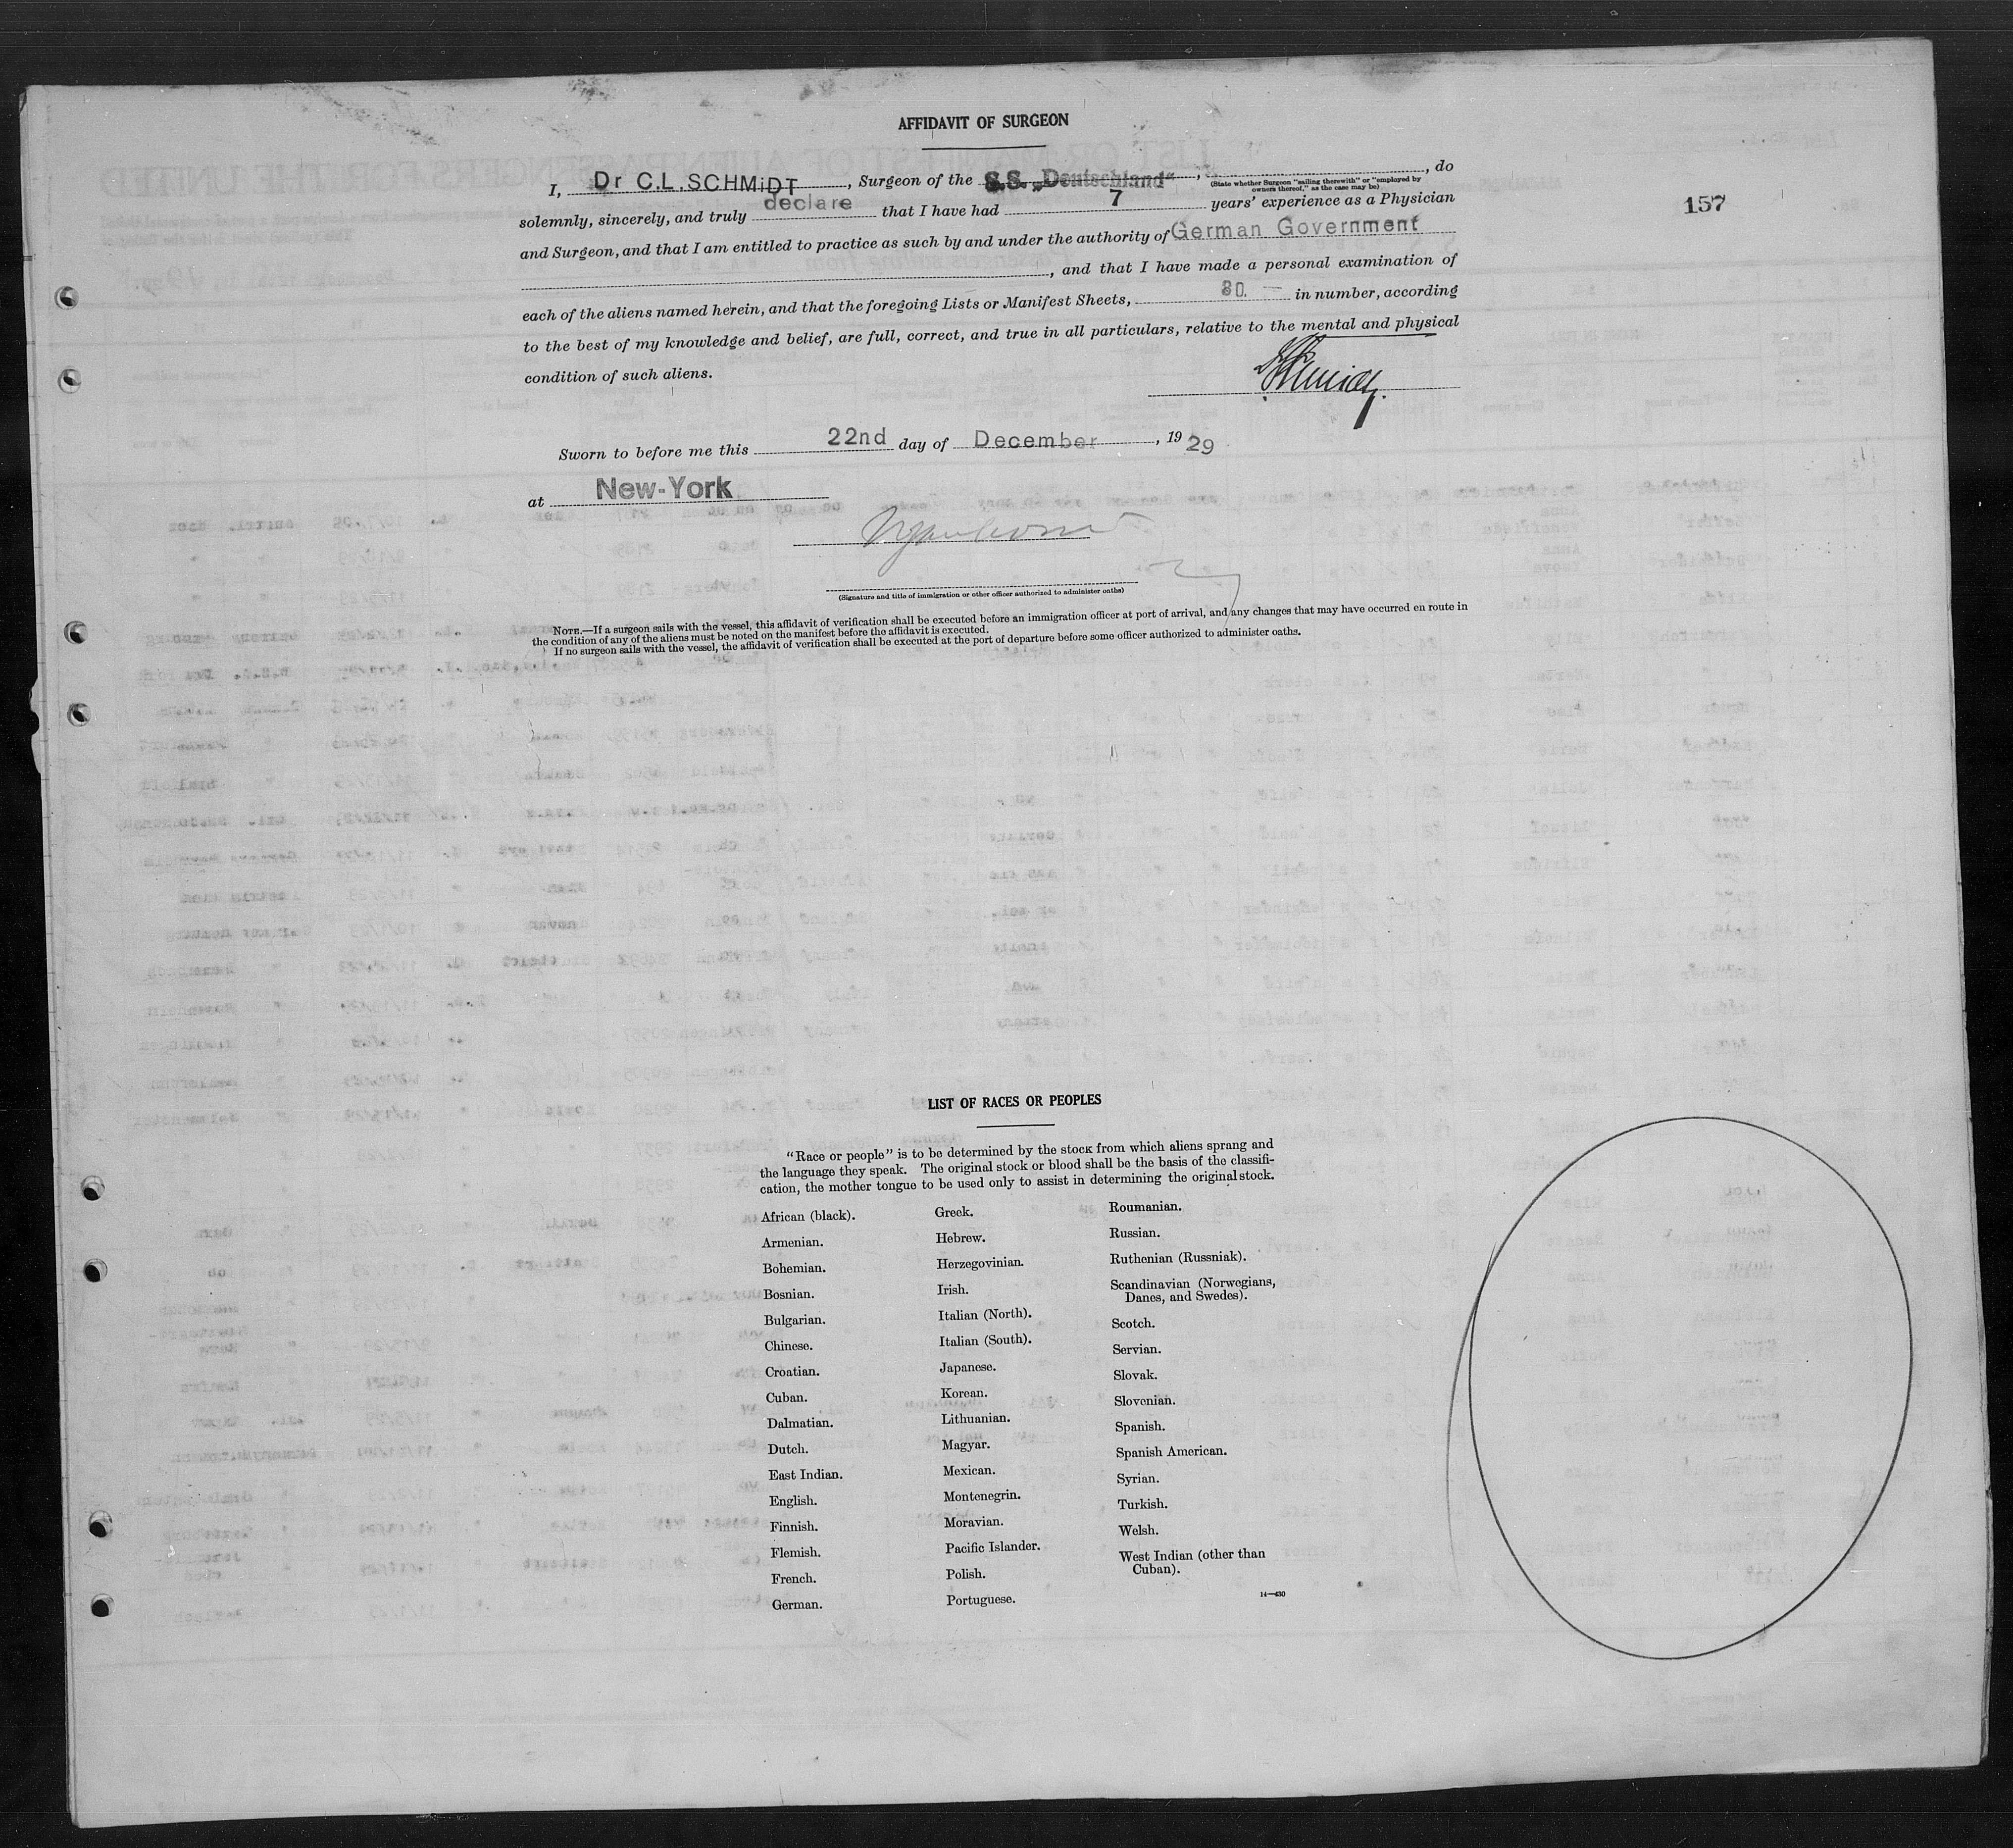 AFFIDAVIT OF SURGEON
157
I, Dr C.L.SCHMiDT, Surgeon of the S.S. „Deutschland", , do
(State whether Surgeon "sailing therewith" or "employed by
owners thereof," as the case may be)
solemnly, sincerely, and truly declare that I have had 7 years' experience as a Physician
and Surgeon, and that I am entitled to practice as such by and under the authority of German Government
, and that I have made a personal examination of
each of the aliens named herein, and that the foregoing Lists or Manifest Sheets, 30. in number, according
to the best of my knowledge and belief, are full, correct, and true in all particulars, relative to the mental and physical
condition of such aliens.
Sworn to before me this 22nd day of December, 1929
at New-York
(Signature and title of immigration or other officer authorized to administer oaths)
NOTE.—If a surgeon sails with the vessel, this affidavit of verification shall be executed before an immigration officer at port of arrival, and any changes that may have occurred en route in
the condition of any of the aliens must be noted on the manifest before the affidavit is executed.
If no surgeon sails with the vessel, the affidavit of verification shall be executed at the port of departure before some officer authorized to administer oaths.
LIST OF RACES OR PEOPLES
"Race or people" is to be determined by the stock from which aliens sprang and
the language they speak. The original stock or blood shall be the basis of the classifi-
cation, the mother tongue to be used only to assist in determining the original stock.
African (black).
Armenian.
Bohemian.
Bosnian.
Bulgarian.
Chinese.
Croatian.
Cuban.
Dalmatian.
Dutch.
East Indian.
English.
Finnish.
Flemish.
French.
German.
Greek.
Hebrew.
Herzegovinian.
Irish.
Italian (North).
Italian (South).
Japanese.
Korean.
Lithuanian.
Magyar.
Mexican.
Montenegrin.
Moravian.
Pacific Islander.
Polish.
Portuguese.
Roumanian.
Russian.
Ruthenian (Russniak).
Scandinavian (Norwegians,
Danes, and Swedes).
Scotch.
Servian.
Slovak.
Slovenian.
Spanish.
Spanish American.
Syrian.
Turkish.
Welsh.
West Indian (other than
Cuban).
14—430